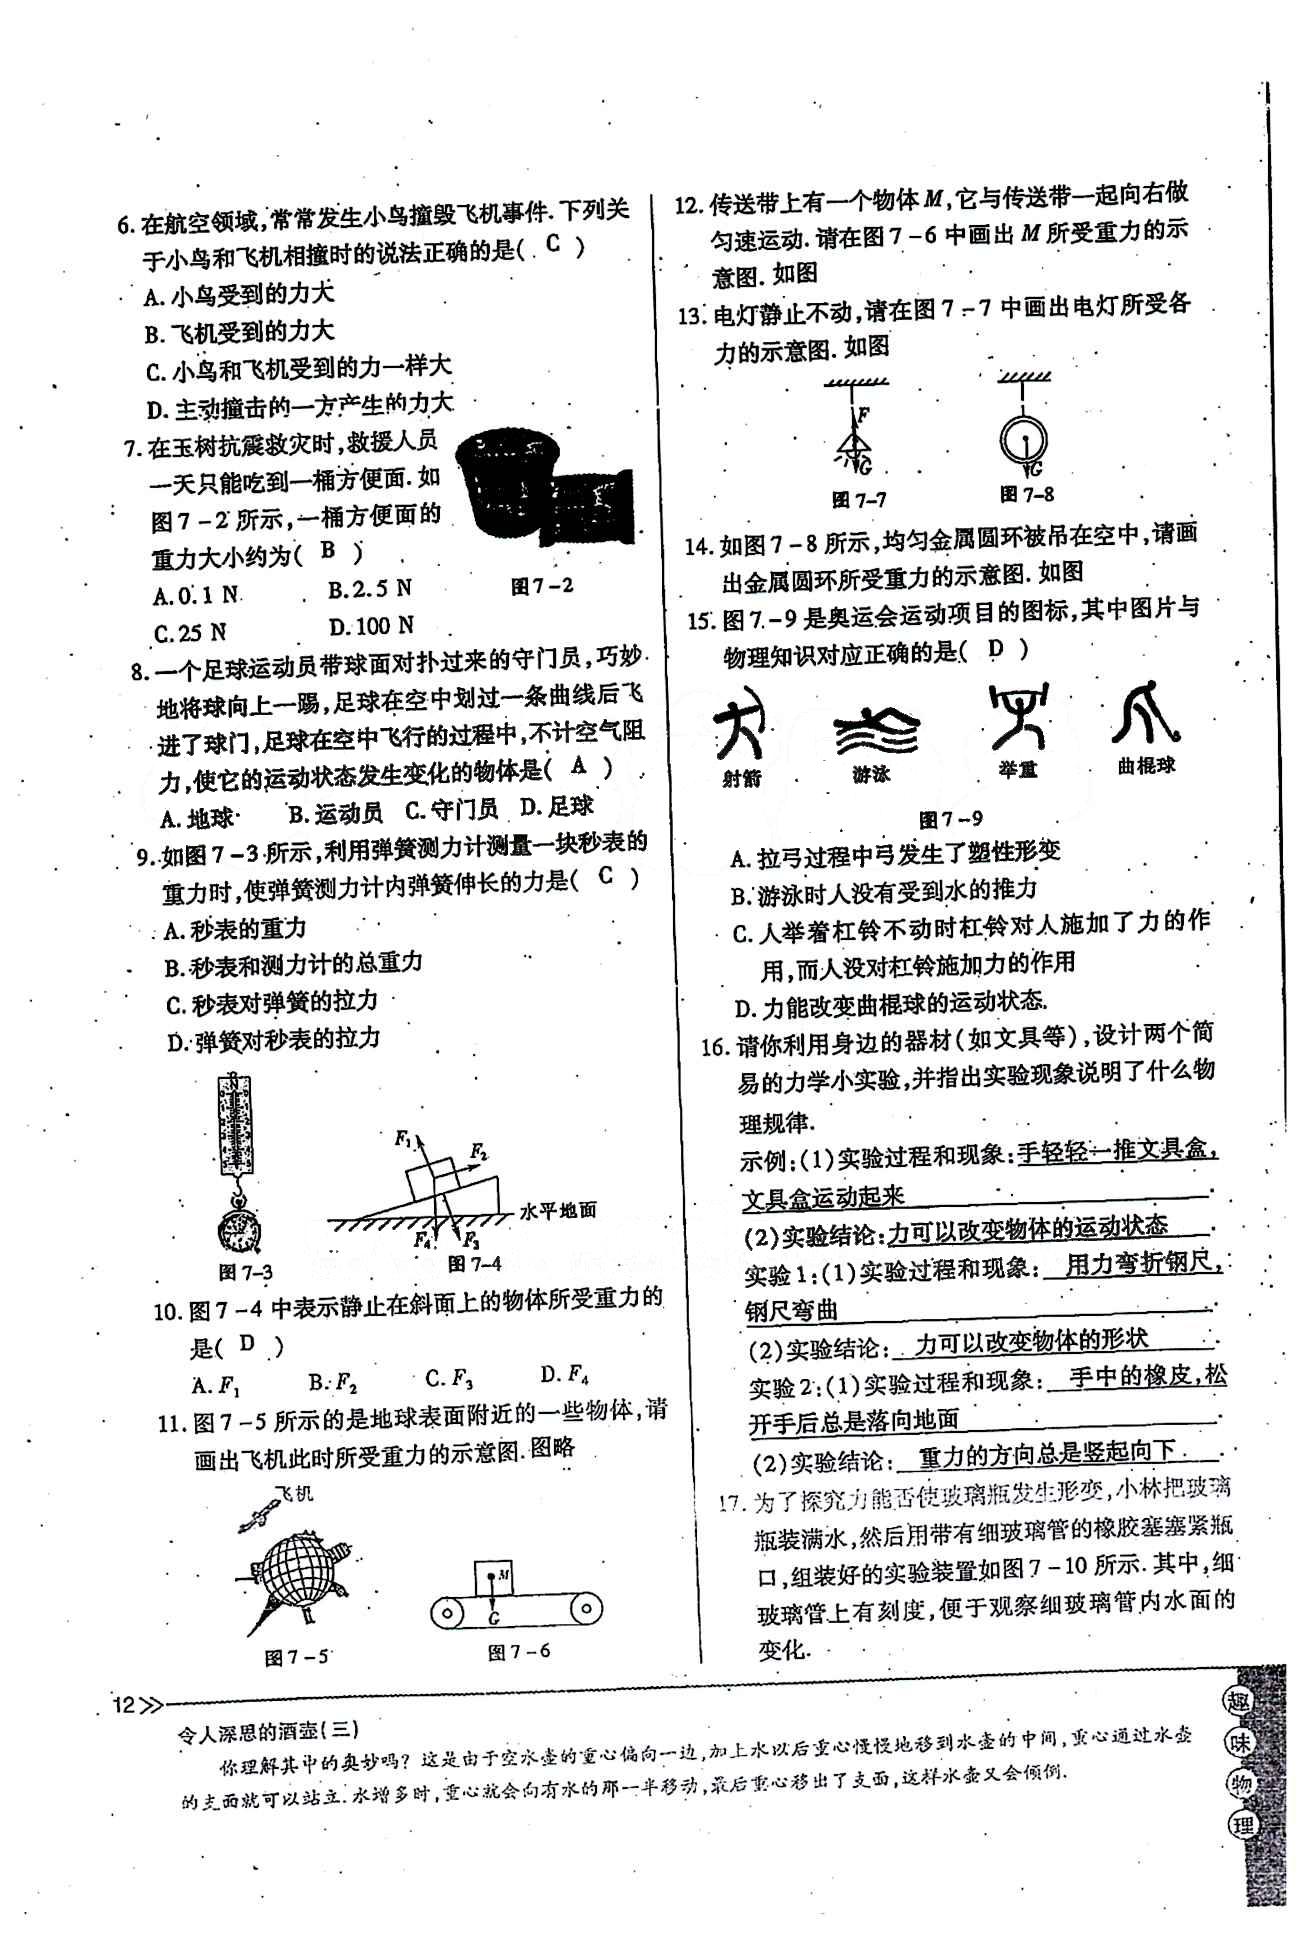 6.在航空领域,常常发生小鸟撞毁飞机事件.下列关
于小鸟和飞机相撞时的说法正确的是( C )
A.小鸟受到的力大
B.飞机受到的力大
C.小鸟和飞机受到的力一样大
D.主动撞击的一方产生的力大
7.在玉树抗震救灾时,救援人员
一天只能吃到一桶方便面.如
图7-2所示,一桶方便面的
重力大小约为( B )
A.0.1 N  B.2.5 N
C.25 N  D.100 N
图7-2
8.一个足球运动员带球面对扑过来的守门员,巧妙
地将球向上一踢,足球在空中划过一条曲线后飞
进了球门,足球在空中飞行的过程中,不计空气阻
力,使它的运动状态发生变化的物体是( A )
A.地球  B.运动员  C.守门员  D.足球
9.如图7-3所示,利用弹簧测力计测量一块秒表的
重力时,使弹簧测力计内弹簧伸长的力是( C )
A.秒表的重力
B.秒表和测力计的总重力
C.秒表对弹簧的拉力
D.弹簧对秒表的拉力
N
F₁
F₂
水平地面
F₄ F₃
图7-3
图7-4
10.图7-4中表示静止在斜面上的物体所受重力的
是( D )
A.F₁  B.F₂  C.F₃  D.F₄
11.图7-5所示的是地球表面附近的一些物体,请
画出飞机此时所受重力的示意图.图略
飞机
M
G
图7-5
图7-6
12.传送带上有一个物体M,它与传送带一起向右做
匀速运动.请在图7-6中画出M所受重力的示
意图.如图
13.电灯静止不动,请在图7-7中画出电灯所受各
力的示意图.如图
F
G
G
图7-7
图7-8
14.如图7-8所示,均匀金属圆环被吊在空中,请画
出金属圆环所受重力的示意图.如图
15.图7-9是奥运会运动项目的图标,其中图片与
物理知识对应正确的是( D )
射箭  游泳  举重  曲棍球
图7-9
A.拉弓过程中弓发生了塑性形变
B.游泳时人没有受到水的推力
C.人举着杠铃不动时杠铃对人施加了力的作
用,而人没对杠铃施加力的作用
D.力能改变曲棍球的运动状态.
16.请你利用身边的器材(如文具等),设计两个简
易的力学小实验,并指出实验现象说明了什么物
理规律.
示例:(1)实验过程和现象:手轻轻一推文具盒,
文具盒运动起来.
(2)实验结论:力可以改变物体的运动状态.
实验1:(1)实验过程和现象: 用力弯折钢尺,
钢尺弯曲.
(2)实验结论: 力可以改变物体的形状.
实验2:(1)实验过程和现象: 手中的橡皮,松
开手后总是落向地面.
(2)实验结论: 重力的方向总是竖起向下.
17.为了探究力能否使玻璃瓶发生形变,小林把玻璃
瓶装满水,然后用带有细玻璃管的橡胶塞塞紧瓶
口,组装好的实验装置如图7-10所示.其中,细
玻璃管上有刻度,便于观察细玻璃管内水面的
变化.
12
令人深思的酒壶(三)
你理解其中的奥妙吗?这是由于空水壶的重心偏向一边,加上水以后重心慢慢地移到水壶的中间,重心通过水壶
的支面就可以站立.水增多时,重心就会向有水的那一半移动,最后重心移出了支面,这样水壶又会倾倒.
趣
味
物
理